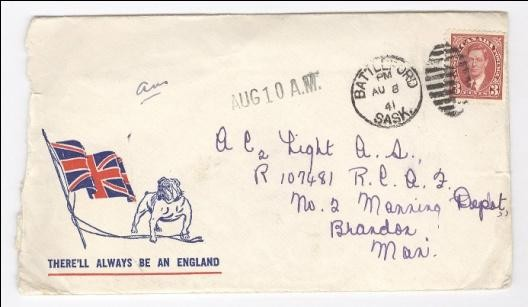 ans
AUG 10 A.M.
BATTLEFORD
PM
AU 8
41
SASK.
CANADA
3 CENTS 3
A C 2 Light A. S.,
R 107481 R. C. A. F.
No. 2 Manning Depot,
Brandon
Man.
THERE'LL ALWAYS BE AN ENGLAND